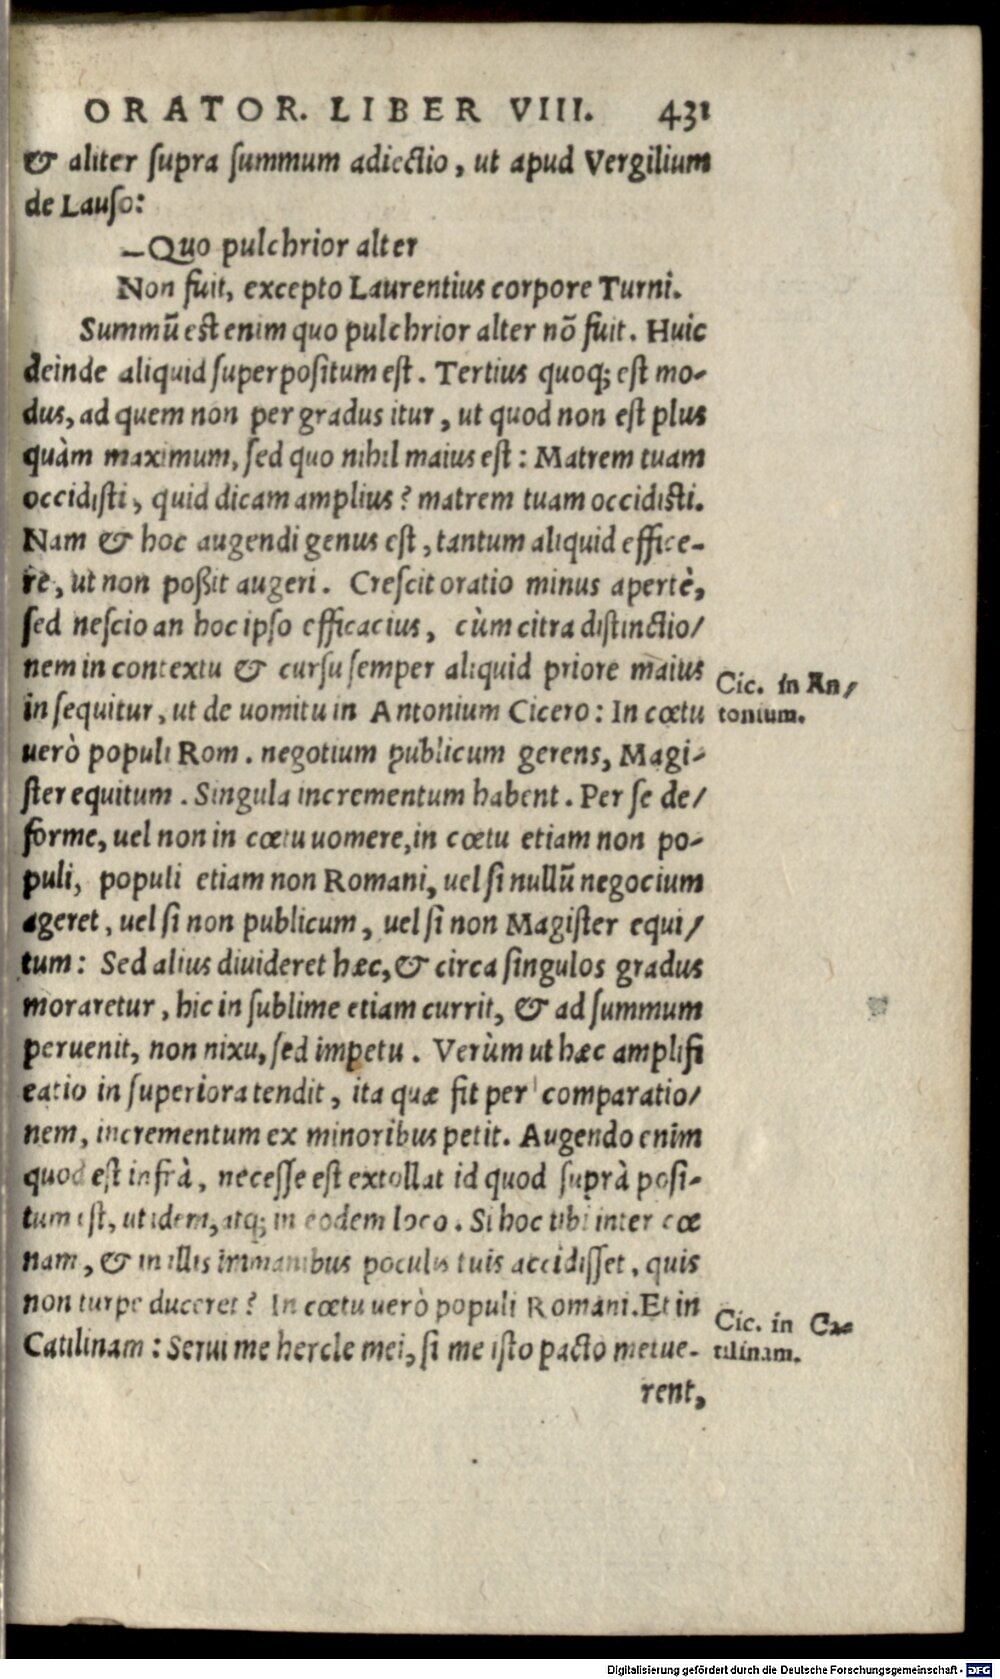 ORATOR. LIBER VIII. 431
& aliter supra summum adiectio, ut apud Vergilium
de Lauso:
—Quo pulchrior alter
Non fuit, excepto Laurentius corpore Turni.
Summū est enim quo pulchrior alter nō fuit. Huic
deinde aliquid superpositum est. Tertius quoq; est mo-
dus, ad quem non per gradus itur, ut quod non est plus
quàm maximum, sed quo nihil maius est: Matrem tuam
occidisti, quid dicam amplius? matrem tuam occidisti.
Nam & hoc augendi genus est, tantum aliquid effice-
re, ut non poßit augeri. Crescit oratio minus apertè,
sed nescio an hoc ipso efficacius, cùm citra distinctio/
nem in contextu & cursu semper aliquid priore maius
insequitur, ut de uomitu in Antonium Cicero: In cœtu
uerò populi Rom. negotium publicum gerens, Magi-
ster equitum. Singula incrementum habent. Per se de/
forme, uel non in cœtu uomere, in cœtu etiam non po-
puli, populi etiam non Romani, uel si nullū negocium
ageret, uel si non publicum, uel si non Magister equi/
tum: Sed alius diuideret hæc, & circa singulos gradus
moraretur, hic in sublime etiam currit, & ad summum
peruenit, non nixu, sed impetu. Verùm ut hæc amplifi
catio in superiora tendit, ita quæ fit per comparatio/
nem, incrementum ex minoribus petit. Augendo enim
quod est infrà, necesse est extollat id quod suprà posi-
tum est, ut idem, atq; in eodem loco. Si hoc tibi inter cœ
nam, & in illis immanibus poculis tuis accidisset, quis
non turpe duceret? In cœtu uerò populi Romani. Et in
Catilinam: Serui me hercle mei, si me isto pacto metue-
rent,
Cic. in An/
tonium.
Cic. in Ca-
tilinam.
Digitalisierung gefördert durch die Deutsche Forschungsgemeinschaft - DFG